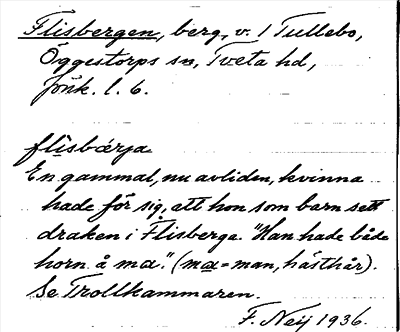 Flisbergen, berg, v. l Tullebo,
Öggestorps sn, Tveta hd,
Jönk. l. 6.
flisbærja
En gammal, nu avliden, kvinna
hade för sig, att hon som barn sett
draken i Flisberga. "Han hade både
horn å ma." (ma = man, hästhår).
Se Trollkammaren.
F. Neij 1936.